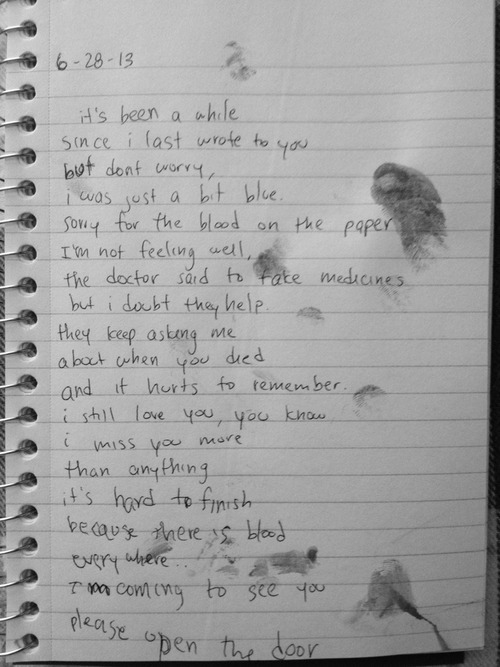 6-28-13
it's been a while
since i last wrote to you
but dont worry,
i was just a bit blue.
sorry for the blood on the paper
I'm not feeling well,
the doctor said to take medicines
but i doubt they help.
they keep asking me
about when you died
and it hurts to remember.
i still love you, you know
i miss you more
than anything
it's hard to finish
because there is blood
everywhere..
I'm coming to see you
please open the door